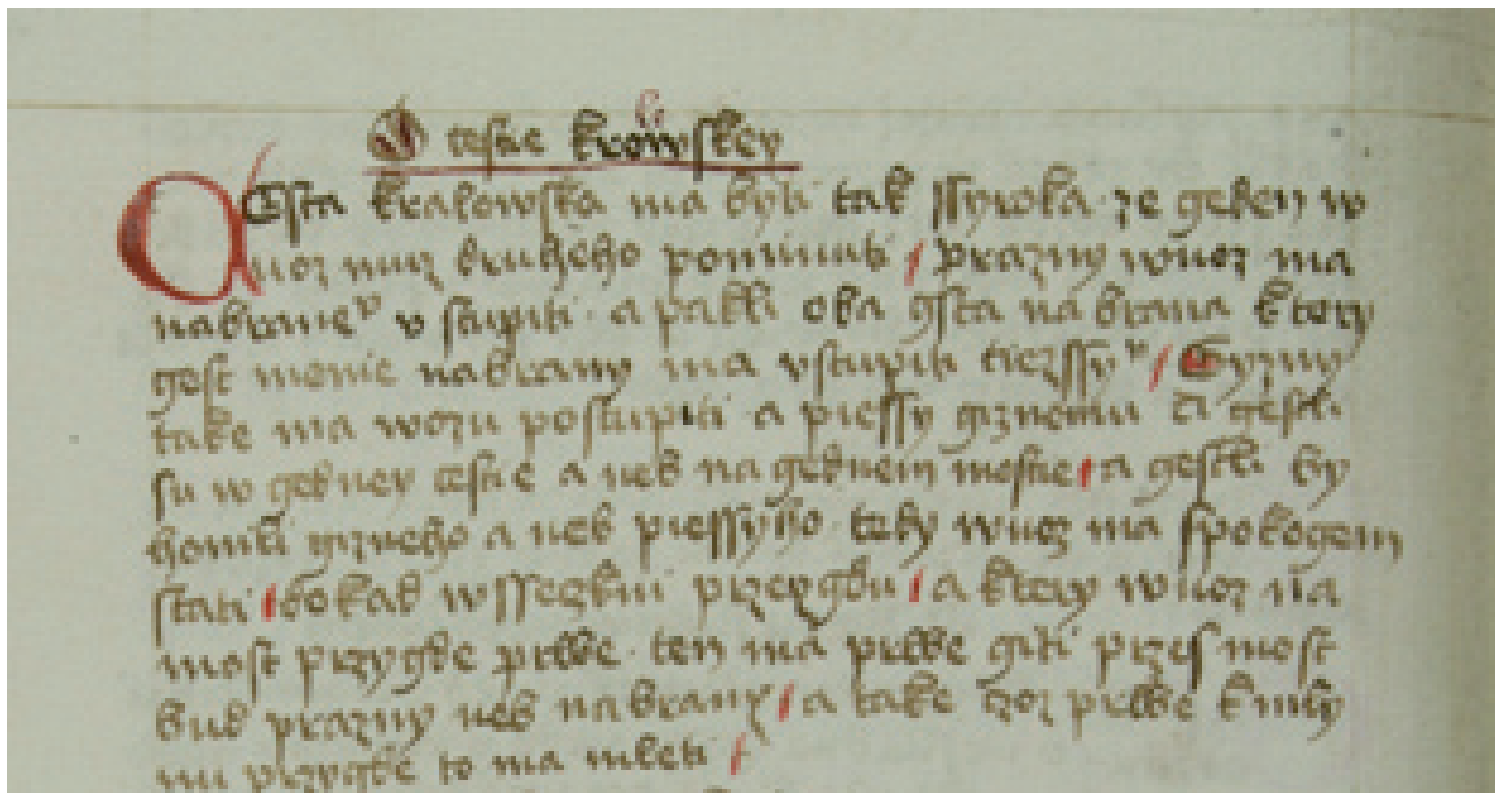 O cestie krowskey
Cesta kralowska ma byti tak ssyroka · ze geden w
uoz muz druheho pominuti / prazny wuoz ma
nabraneᵛ v stupiti · a pakli oba gsta nabrana ktery
gest menie nabrany ma vstupiti tiezssyᵛ / Gyzny
take ma wozu postupiti · a piessy giznemu gestli
su w gedney cestie a neb na gednem mostie / a gestli by
honili gizneho a neb piessyho · tehy wuoz ma spokogem
stati / dokad wsseczkni przeygdu / a ktery wuoz na
most przygde prwe · ten ma prwe giti przes most
bud prazny neb nabrany / a take ktoz prwe k mly
nu przygde to ma mleti /